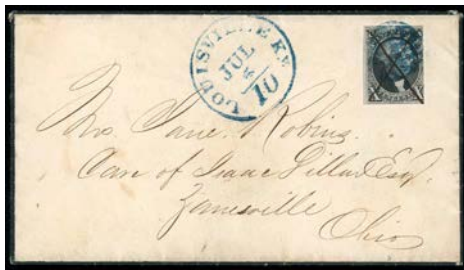 LOUISVILLE KY.
JUL
6
10
Mrs. Jane. Robins.
Care of Isaac Dillon Esq.
Zanesville
Ohio